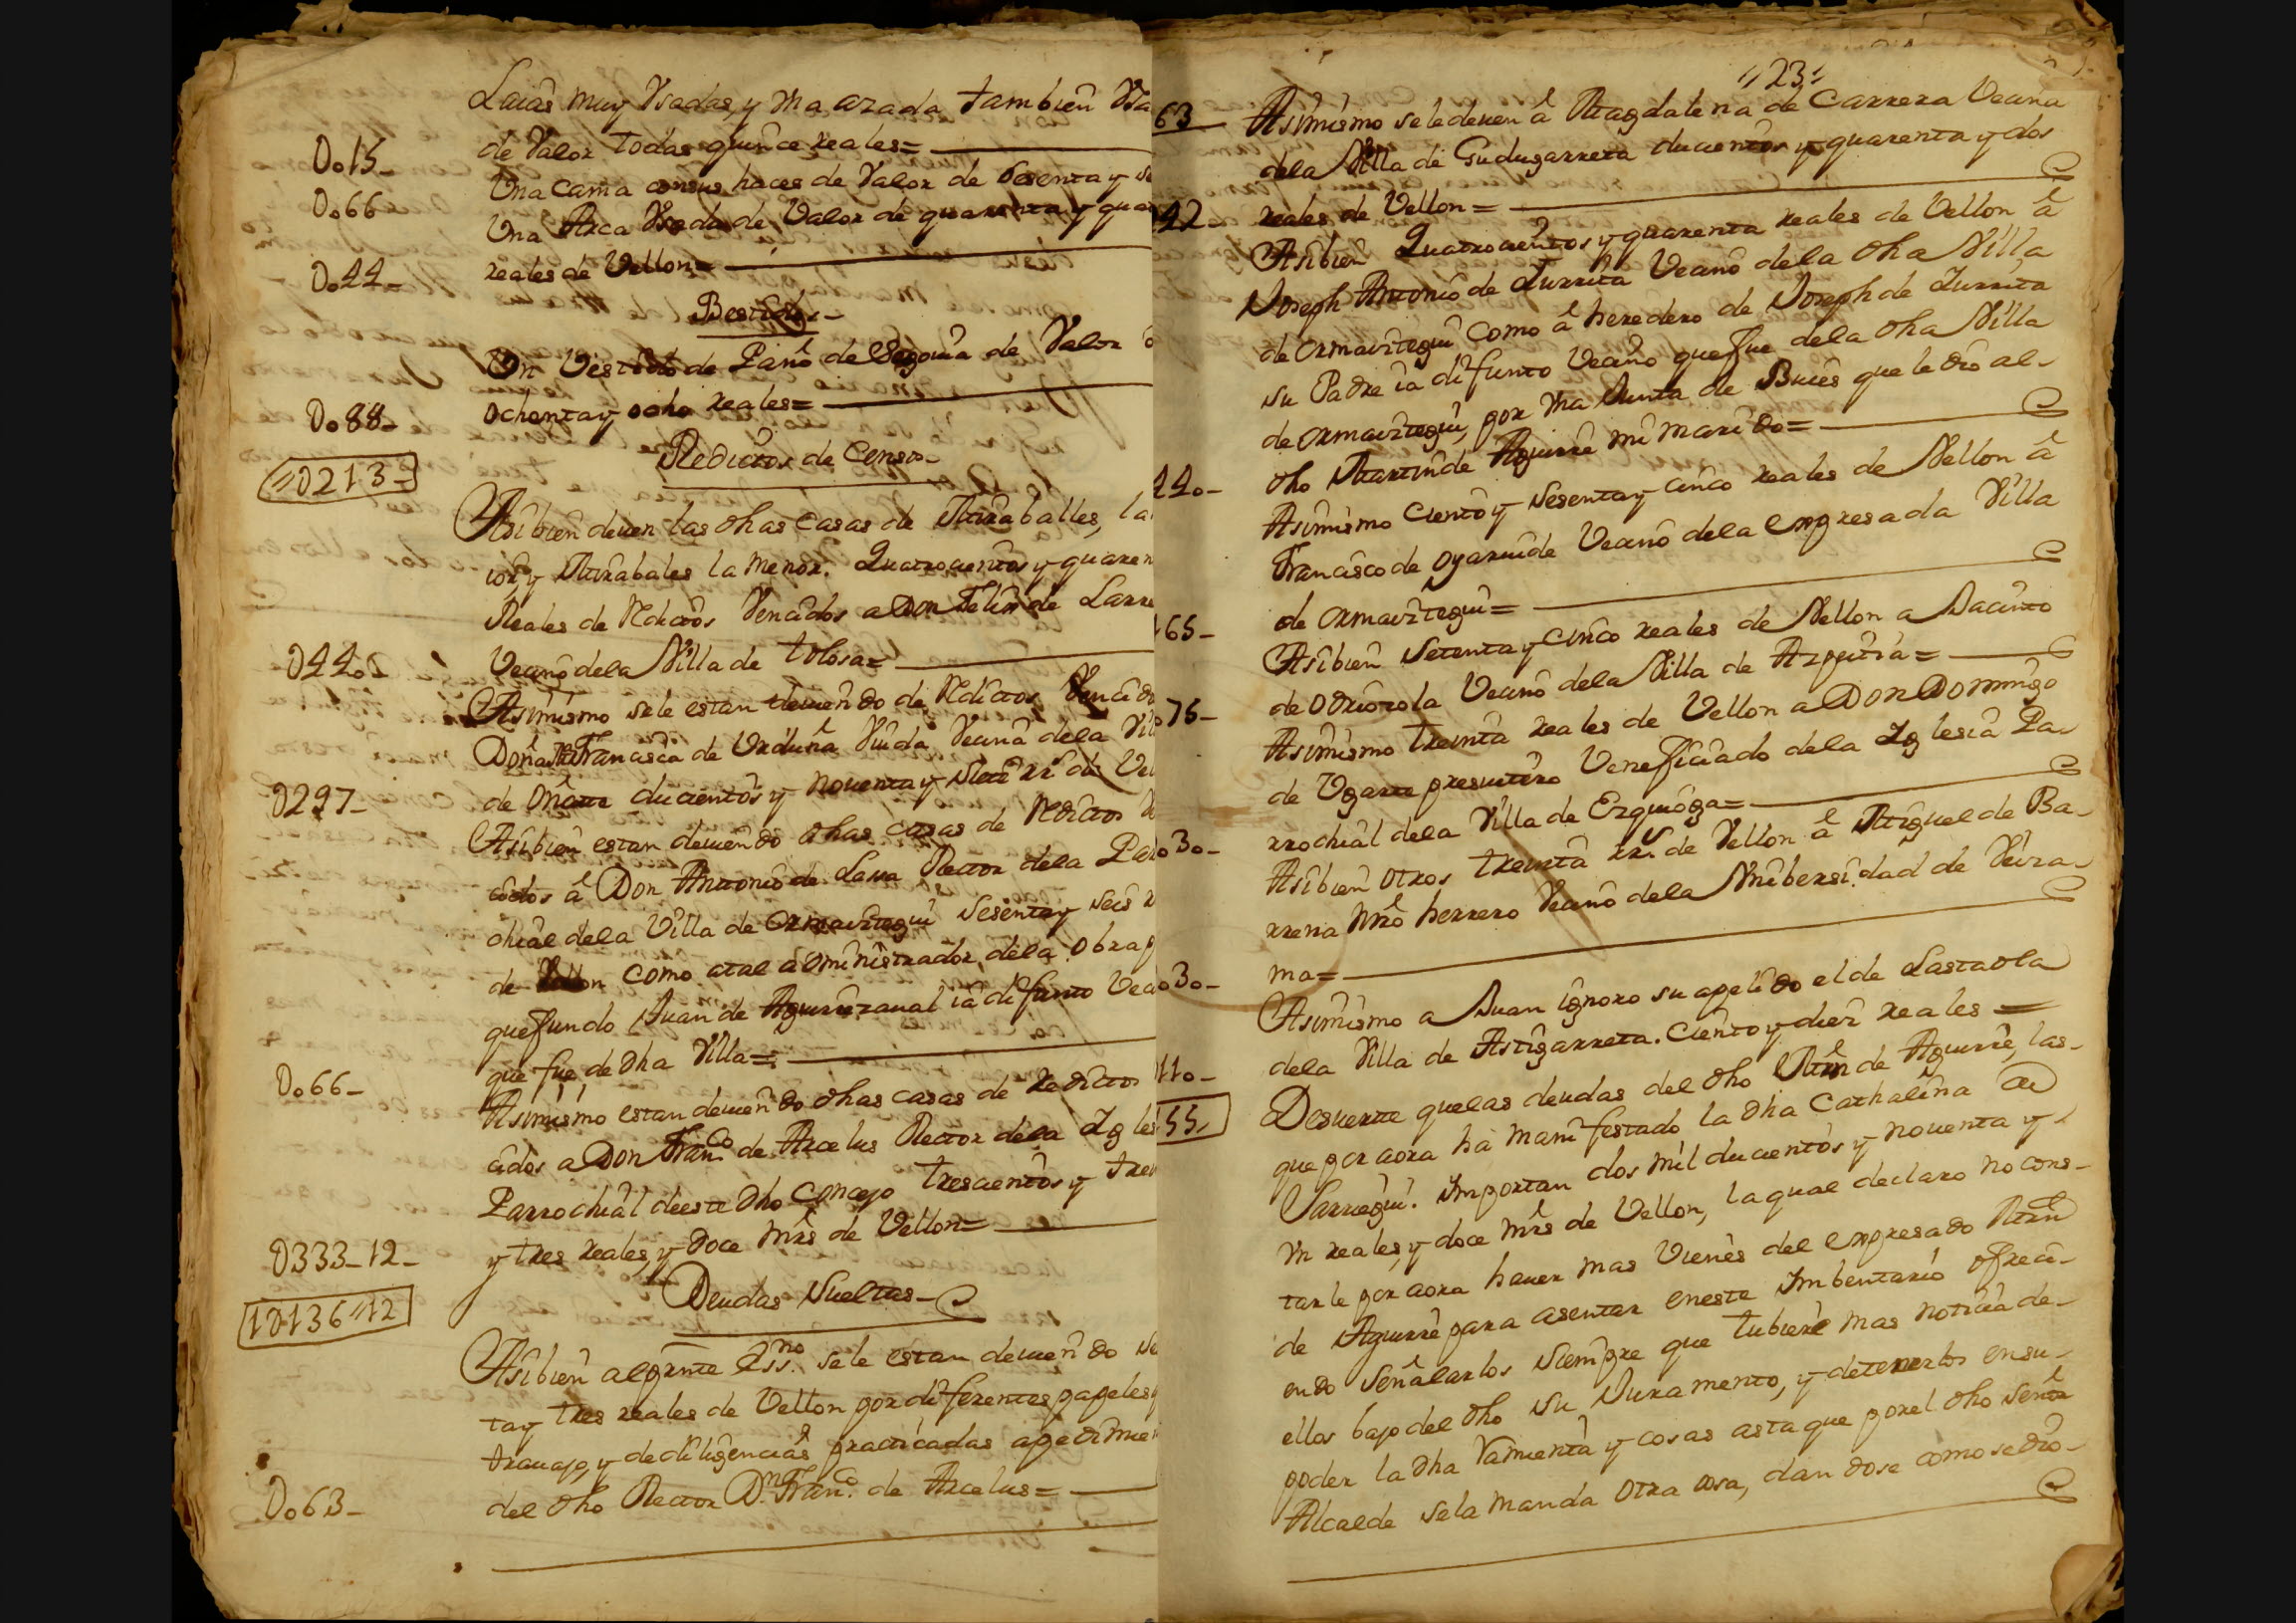 Laias muy Vsadas, y Vna azada tambien Vsa
Do15-
de Valor todas quince reales=
Do66
Vna cama con sus haces de Valor de sesenta y se
Vna Arca Vsada de Valor de quarenta y quat
Do44-
reales de Vellon=
Bestidos-
Vn Vestido de Paño de Segovia de Valor
Do88-
ochenta y ocho reales=
1D213-
Redictos de Censo-
Asibien deven las dhas casas de Miraballes, la
ior, y Mirabales la menor. Quatrocientos y quaren
Reales de Redictos Vencidos a Don Felix de Larre
D440-
Vecino dela Villa de tolosa=
Asimismo sele estan deviendo de Redictos Vencido
Doña Francisca de Vrduña Viuda Vecina dela Vil
D297-
de Oñate ducientos y noventa y siete rs de Ve
Asibien estan deviendo dhas casas de Redictos
cidos â Don Antonio de Lasa Rector dela Par
chial dela Villa de Ormaiztegui sesenta y seis r
de Vellon como atal administrador, dela obra p
que fundo Juan de Aguirrezaual ia difunto Veci
Do66-
que fue, de dha Villa=
Asimismo estan deviendo dhas casas de Redictos
cidos a Don Franco. de Arcelus Rector dela Igles
Parrochial deeste dho Concejo trescientos y trei
D333-12-
y tres reales, y doce mrs de Vellon=
1D136"12
Deudas Sueltas-
Asibien alpresnte Essno. sele estan deviendo se
tay tres reales de Vellon por diferentes papeles y
travajo, y de diligencias practicadas apedimien
Do63-
del dho Rector Dn. Franco. de Arcelus=
"23"
63
Asimismo seledeven â Magdalena de Carrera Vecina
dela Villa de Gudugarreta ducientos y quarenta y dos
42-
reales de Vellon=
Asibien Quatrocientos y quarenta reales de Vellon â
Joseph Antonio de Zurrita Vecino dela dha Villa
de Ormaiztegui como â heredero de Joseph de Zurrita
su Padre ia difunto Vecino que fue dela dha Villa
de Ormaiztegui, por Vna Junta de Bueis que le dio al-
440-
dho Martin de Aguirre mi marido=
Asimismo ciento y sesenta y cinco reales de Vellon â
Francisco de oyarvide Vecino dela Expresada Villa
165-
de Ormaiztegui=
Asibien setenta y cinco reales de Vellon a Jacinto
075-
de Odriozola Vecino dela Villa de Azpeitia=
Asimismo treinta reales de Vellon a Don Domingo
de Vgarte presvitero Veneficiado dela Iglesia Pa-
030-
rrochial dela Villa de Ezquioga=
Asibien otros treinta rs. de Vellon â Miguel de Ba-
rrena Mro herrero Vecino dela Vnibersidad de Veiza-
030-
ma=
Asimismo a Juan ignoro su apelido el de Lastaola
110-
dela Villa de Astigarreta. Ciento y diez reales =
55,
Desuerte quelas deudas del dho Mrn de Aguirre, las-
que por aora ha manifestado la dha Cathalina de
Sarriegui. Importan dos mil ducientos y noventa y
Vn reales, y doce mrs de Vellon, la qual declaro no cons-
tarle por aora haver mas Vienes del expresado Mrn
de Aguirre para asentar eneste Imbentario ofreci-
endo señalarlos siempre que tubiere mas noticia de-
ellos bajo del dho su Juramento, y detenerlos en su-
poder la dha Vamienta y cosas asta que por el dho señor
Alcalde sela manda otra cosa, dandose como se dio-